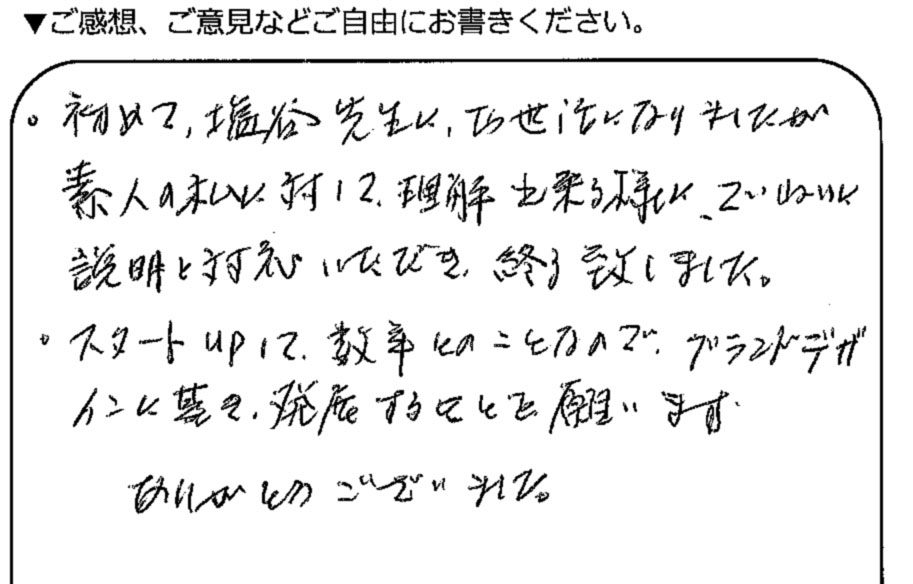 ▼ご感想、ご意見などご自由にお書きください。
・初めて、塩谷先生に、お世話になりましたが
素人の私に対して、理解出来る様に、ていねいに
説明と対応いただき、終了致しました。
・スタートupして、数年とのことなので、グランドデザ
インに基き、発展することを願います
ありがとうございました。